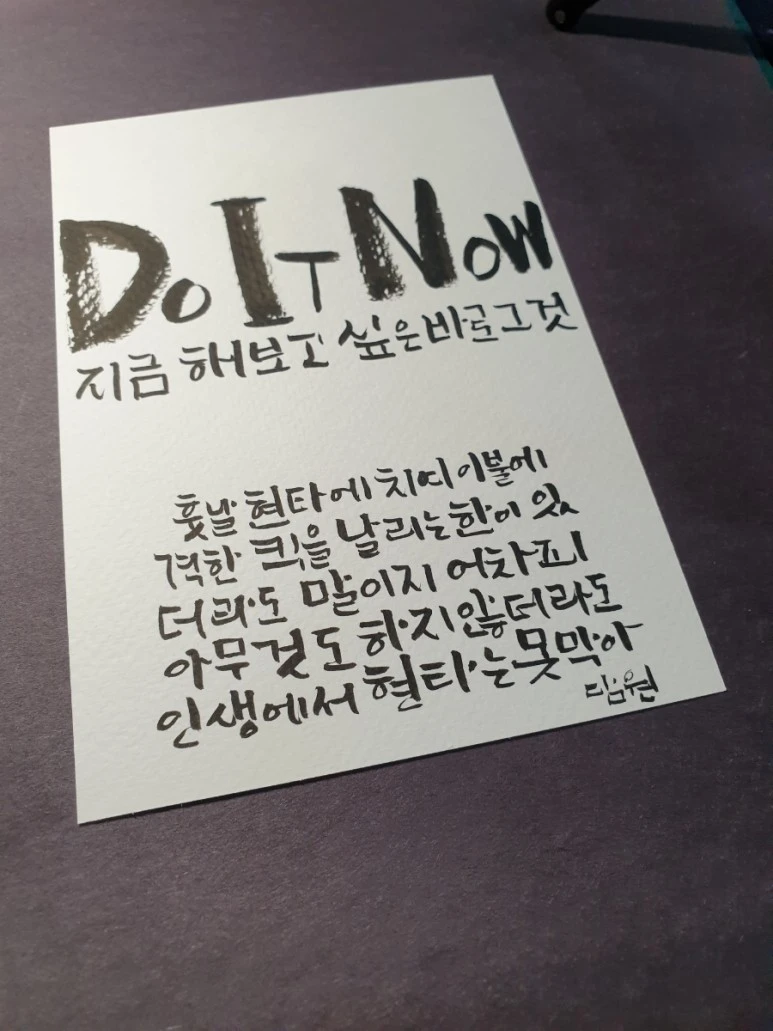 Do It Now
지금 해보고 싶은 바로 그것
훗날 현타에 치여 이불에
격한 킥을 날리는 한이 있
더라도 말이지 어차피
아무것도 하지 않더라도
인생에서 현타는 못 막아